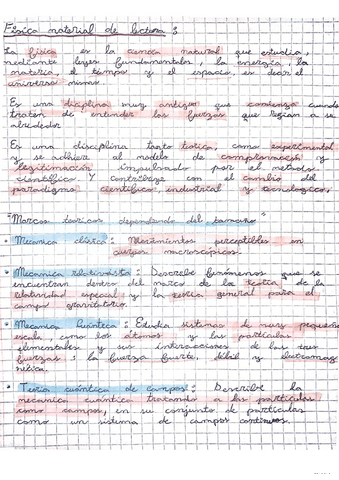 Física material de lectura :
La física es la ciencia natural que estudia,
mediante leyes fundamentales, la energía, la
materia, el tiempo y el espacio, es decir el
universo mismo.
Es una diciplina muy antigua que comienza cuando
traten de entender las fuerzas que regian a su
alrededor
Es una disciplina tanto teorica, como experimental
y se adhiere al modelo de comprobación y
legitimación impulsado por el metodo
cientifico Y contribuye con el cambio del
paradigma cientifico, industrial y tecnologico,
"Marcos teoricos dependiendo del tamaño"
• Mecanica clásica : Movimientos perceptibles en
cuerpos macroscópicos.
• Mecanica relativista : Describe fenómenos que se
encuentran dentro del marco de la teoria de la
relatividad especial y la teoria general para el
campo gravitatorio.
• Mecanica Cuántica : Estudia sistemas de muy pequeña
escala como los átomos y las particulas
elementales y sus interacciones de las tres
fuerzas : la fuerza fuerte, débil y electromag
nética.
• Teoria cuántica de campos : Describe la
mecanica cuántica tratando a las particulas
como campos, en su conjunto de particulas
como un sistema de campos continuos.